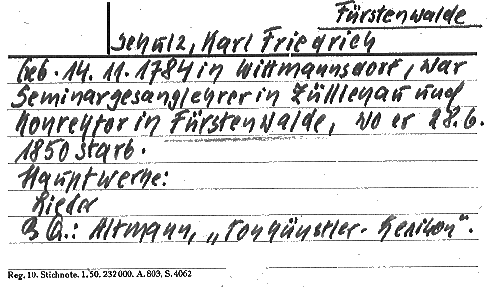 Fürstenwalde
Schulz, Karl Friedrich
Geb. 14. 11. 1784 in Wittmannsdorf, war
Seminargesanglehrer in Züllenau und
Konrektor in Fürstenwalde, wo er 28.6.
1850 starb.
Hauptwerke:
Lieder
B Q.: Altmann, „Tonkünstler-Lexikon".
Reg. 10. Stichnote. 1.50. 232000. A. 803, S. 4062